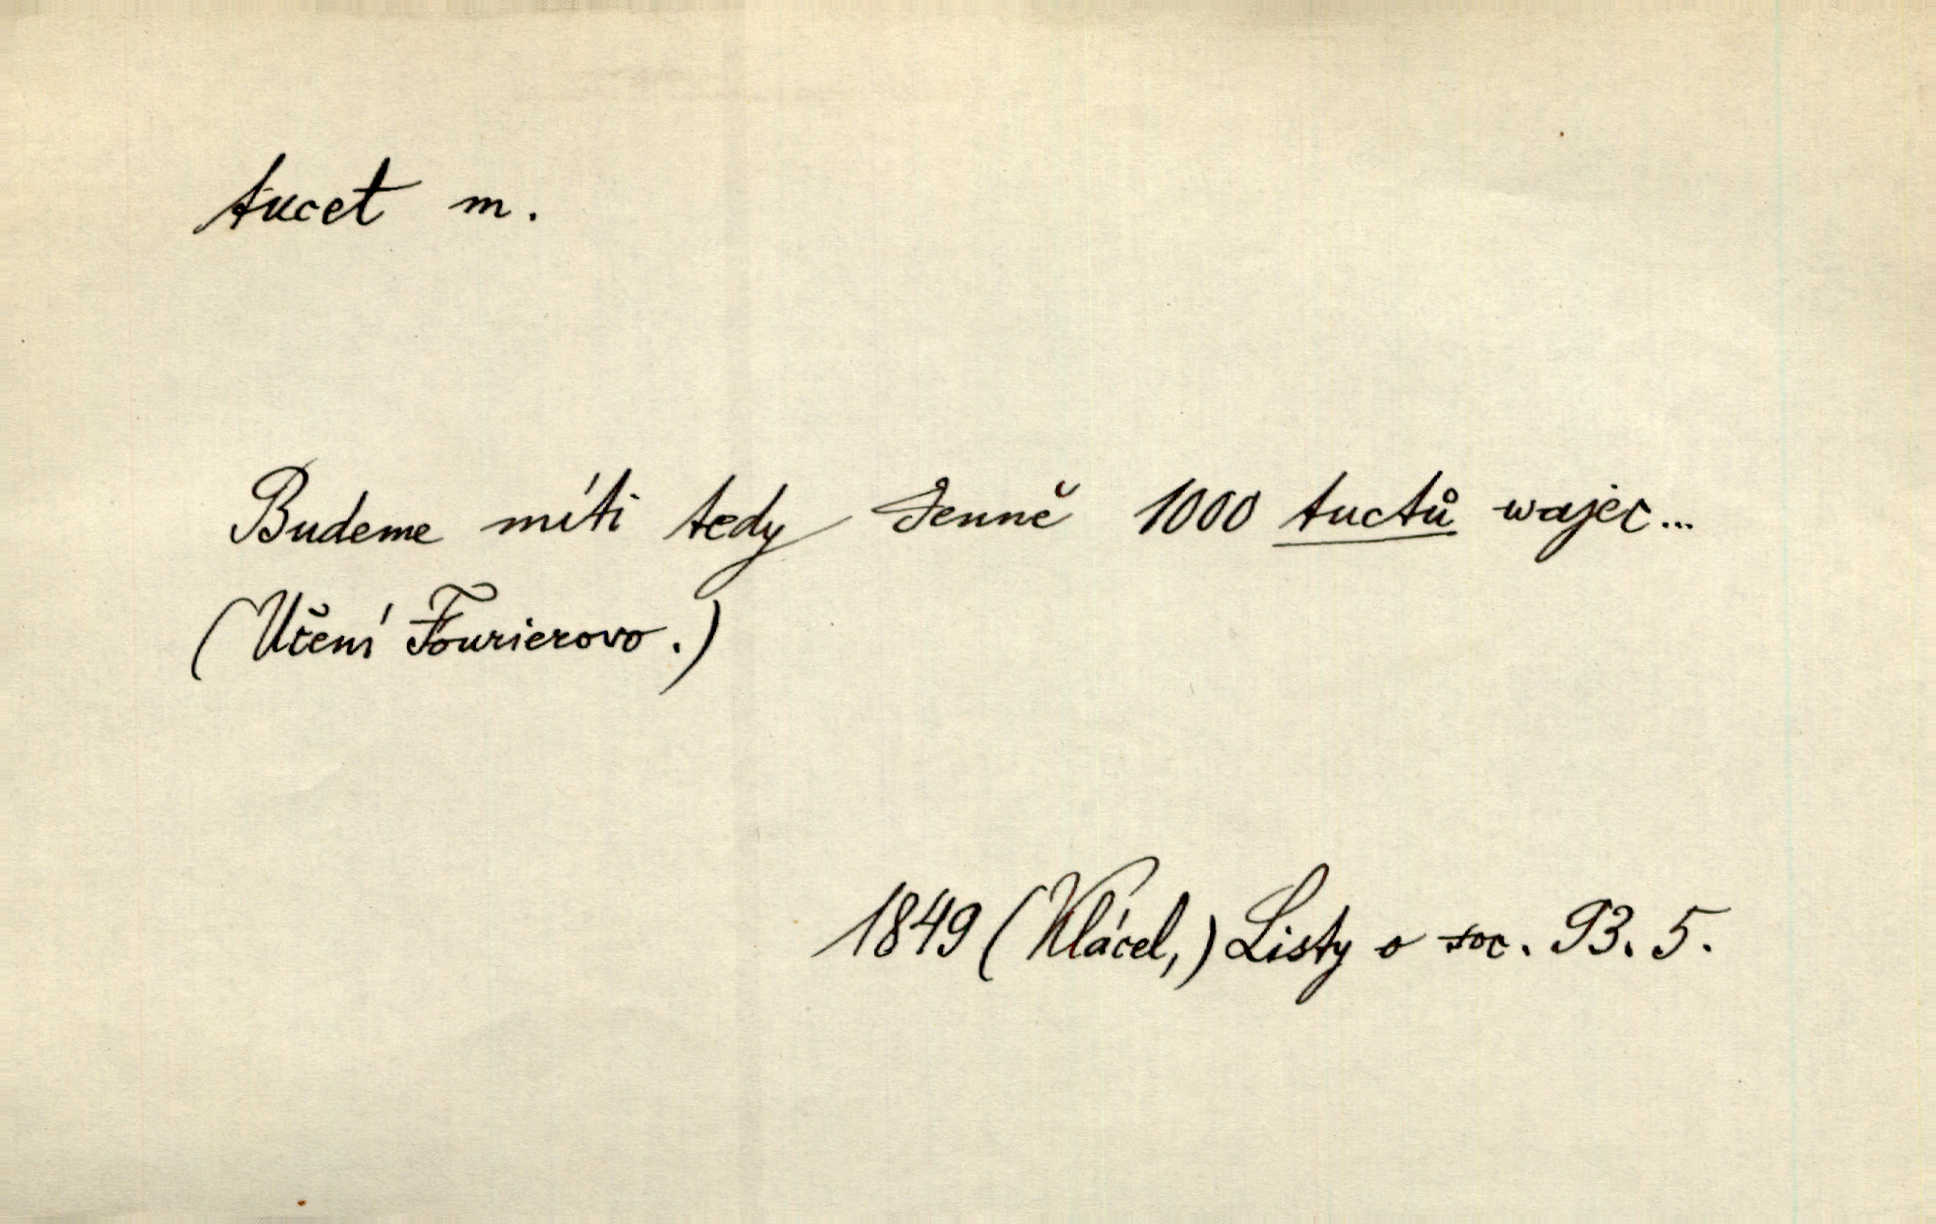 tucet m.
Budeme míti tedy denně 1000 tuctů wajec...
(Učení Fourierovo.)
1849 (Klácel,) Listy o soc. 93. 5.